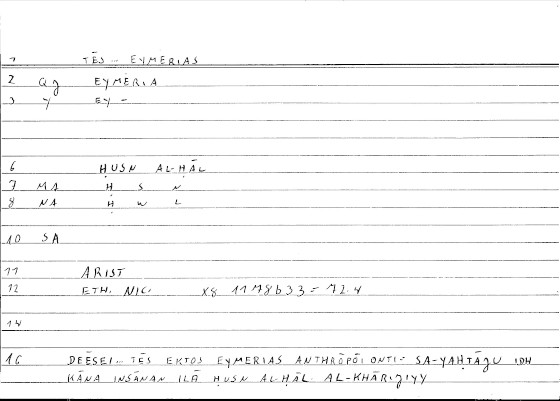 1 TĒS - EYMERIAS
2 Qʒ EYMERIA
3 Y EY -
6 ḤUSN AL-ḤĀL
7 MA Ḥ S N
8 NA Ḥ W L
10 SA
11 ARIST
12 ETH. NIC. X8 1178b33 = 72.4
14
16 DEĒSEI - TĒS EKTOS EYMERIAS ANTHRŌPŌI ONTI - SA-YAḤTĀJU IDH
KĀNA INSĀNAN ILĀ ḤUSN AL-ḤĀL AL-KHĀRIJIYY